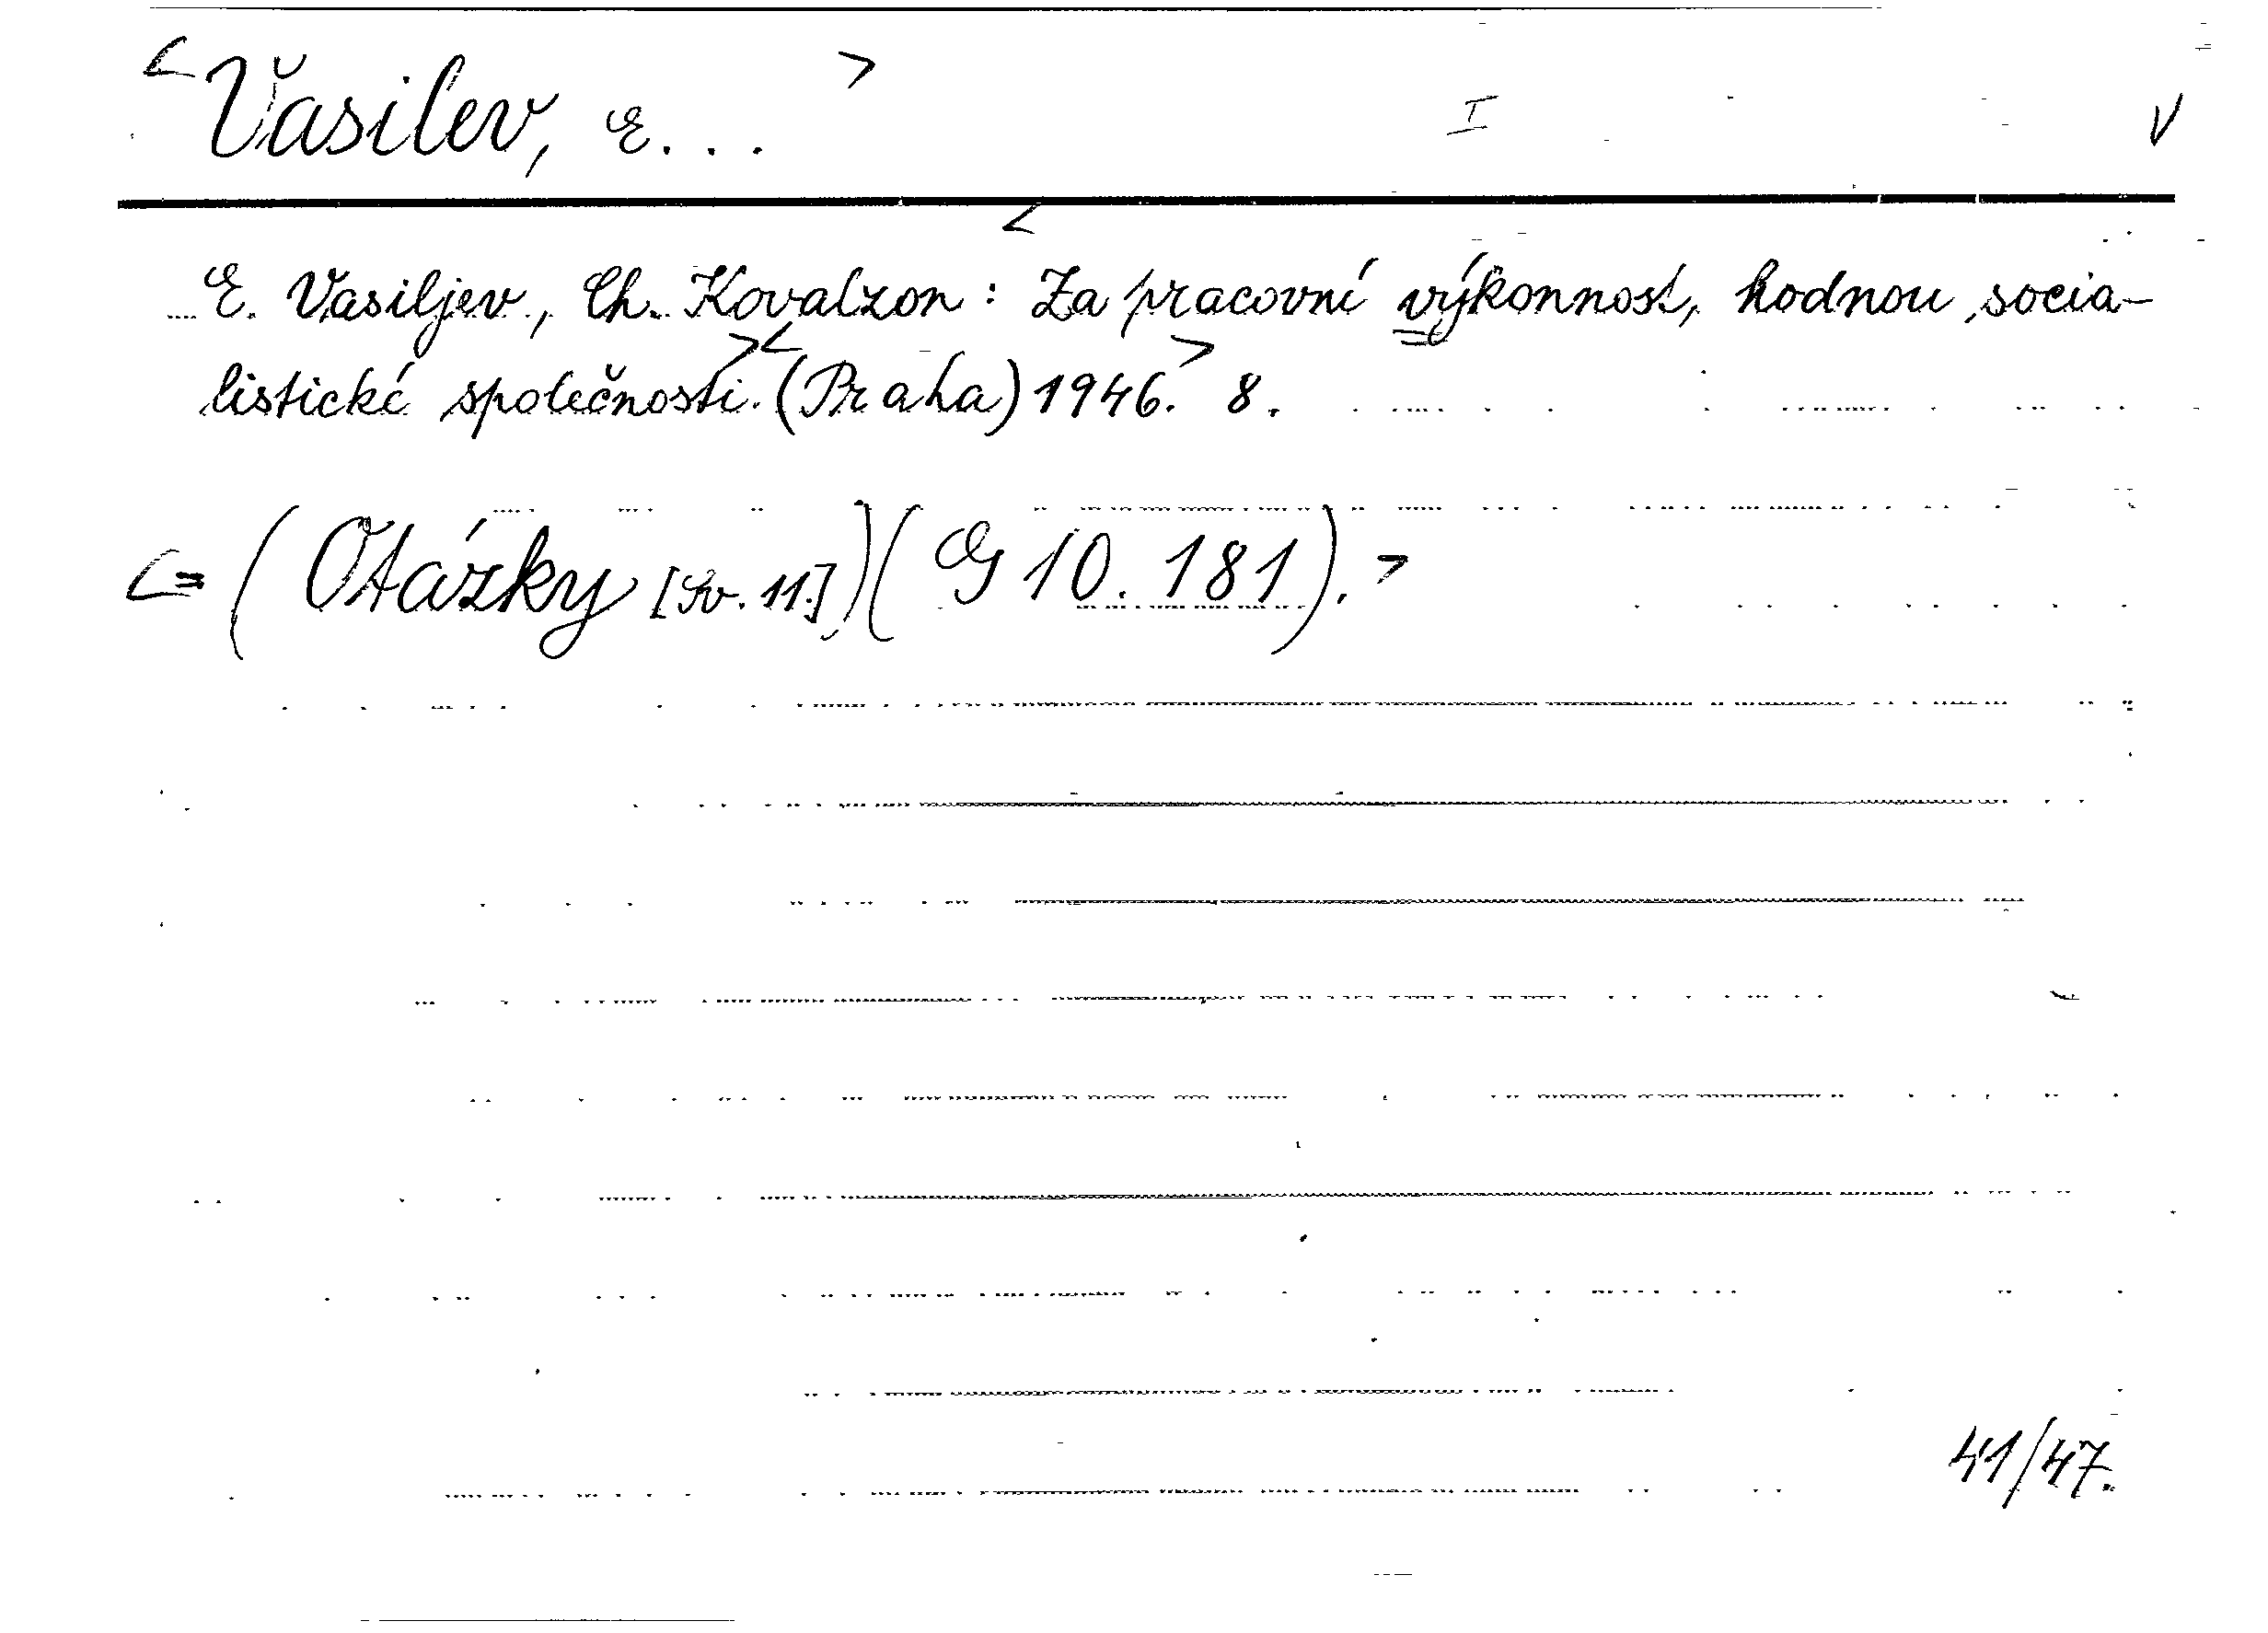 <Vasilev, E...> I V
E. Vasiljev, Ch. Kovalzon: <Za pracovní výkonnost, hodnou socia-
listické společnosti.><(Praha) 1946.> 8.
<=(Otázky [Sv. 11.])(G 10.181).>
41/47.